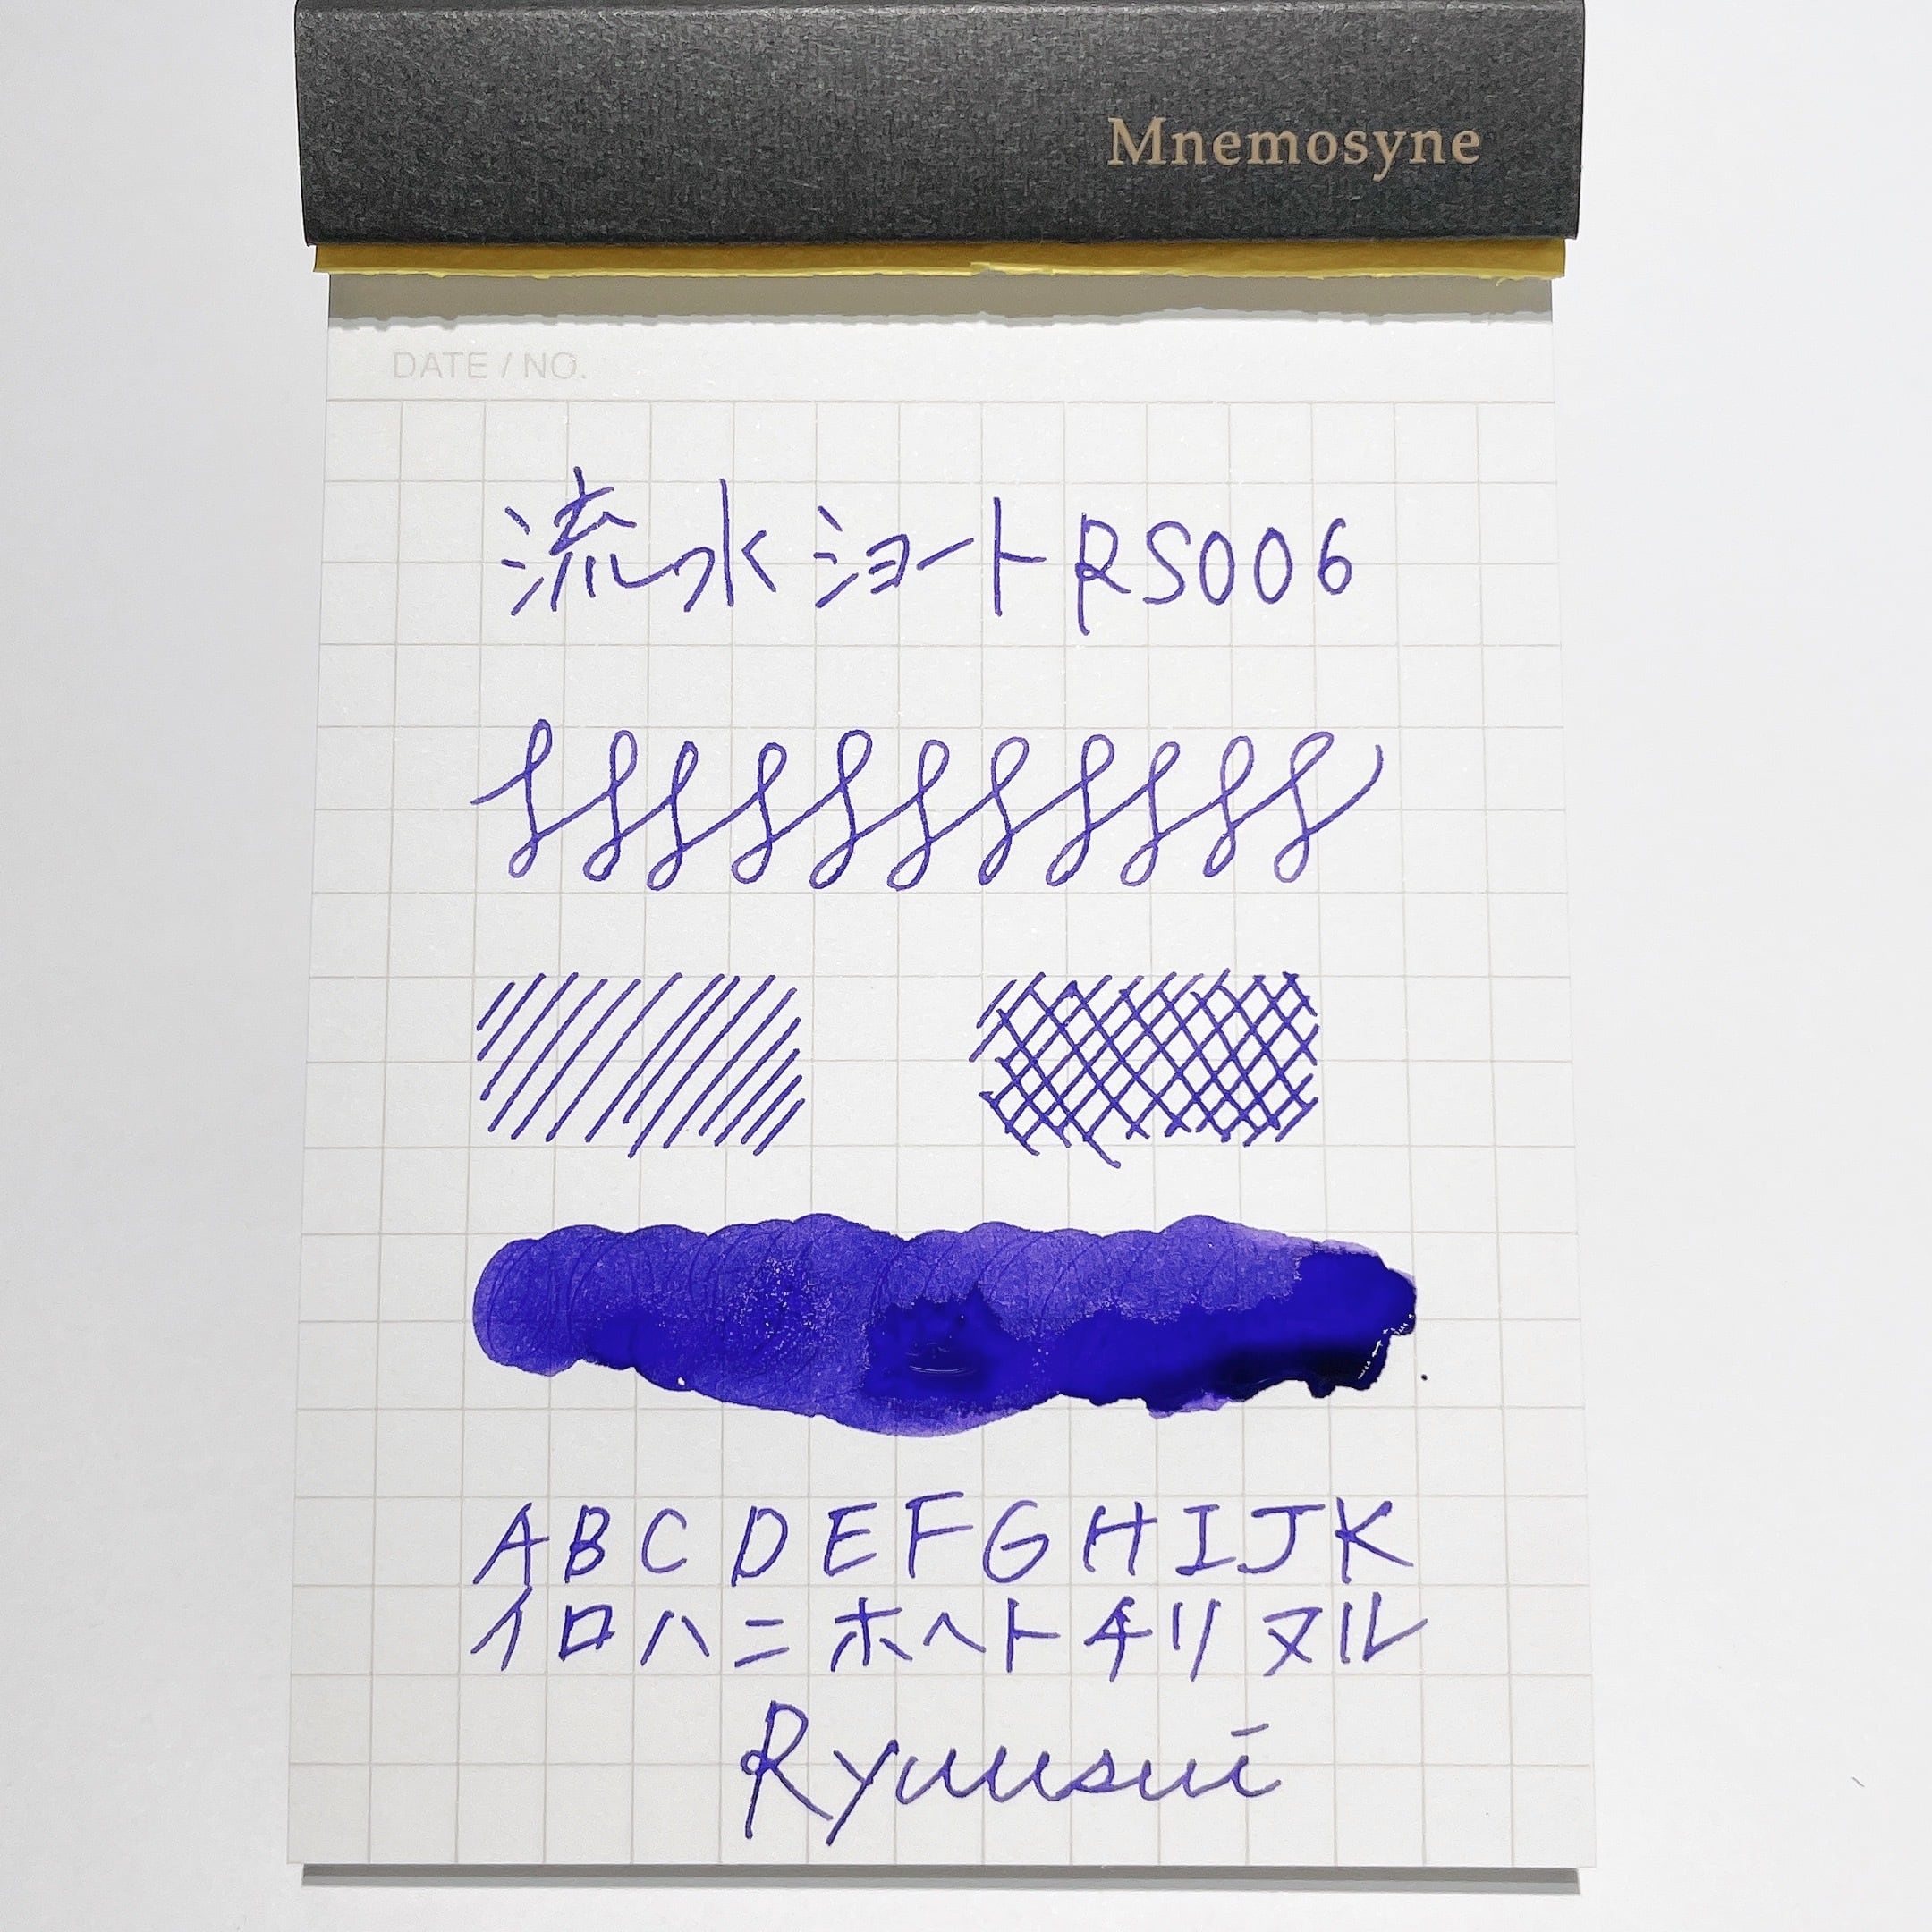 Mnemosyne
DATE / NO.
流水ショートRS006
A B C D E F G H I J K
イロハニホヘトチリヌル
Ryuusui